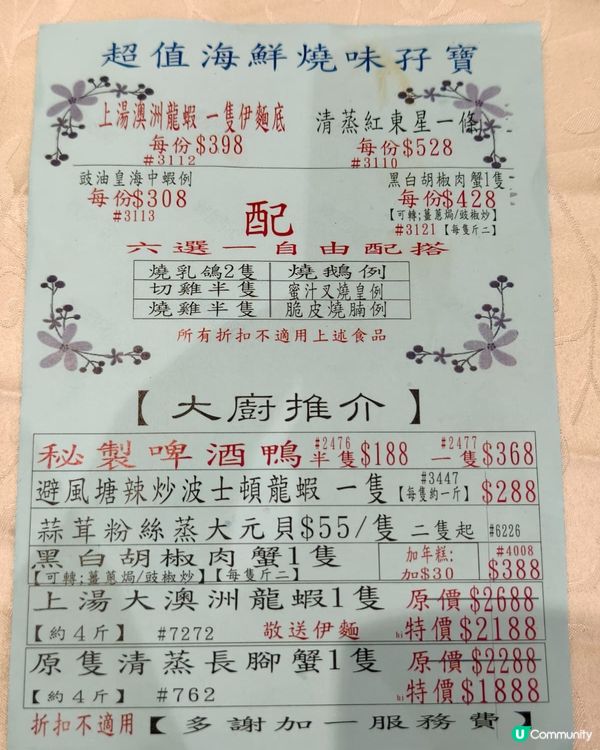 超值海鮮燒味孖寶
上湯澳洲龍蝦 一隻伊麵底
每份$398
#3112
清蒸紅東星一條
每份$528
#3110
豉油皇海中蝦例
每份$308
#3113
黑白胡椒肉蟹1隻
每份$428
【可轉;薑蔥焗/豉椒炒】
#3121【每隻斤二】
配
六選一自由配搭
燒乳鴿2隻 燒鵝例
切雞半隻 蜜汁叉燒皇例
燒雞半隻 脆皮燒腩例
所有折扣不適用上述食品
【大廚推介】
秘製啤酒鴨 #2476 半隻$188 #2477 一隻$368
避風塘辣炒波士頓龍蝦 一隻 #3447 【每隻約一斤】 $288
蒜茸粉絲蒸大元貝$55/隻 二隻起 #6226
黑白胡椒肉蟹1隻 加年糕: #4008
【可轉;薑蔥焗/豉椒炒】【每隻斤二】 加$30 $388
上湯大澳洲龍蝦1隻 原價$2688
【約4斤】 #7272 敬送伊麵 hi特價$2188
原隻清蒸長腳蟹1隻 原價$2288
【約4斤】 #762 hi特價$1888
折扣不適用【多謝加一服務費】
U Community